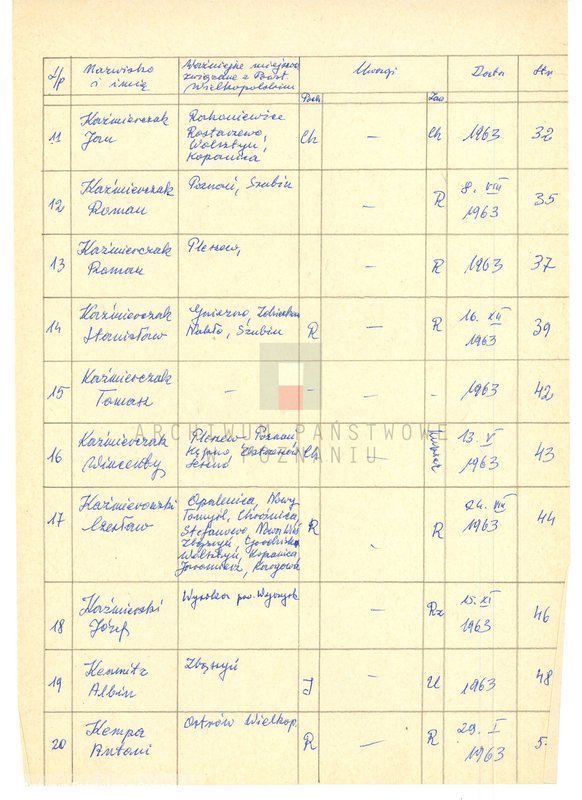 L/p Nazwisko i imię Ważniejsze miejsca związane z Powst. Wielkopolskim Uwagi Data Str.
Poch Zaw
11 Kaźmierczak Jan Rakoniewice Rostarzewo, Wolsztyn, Kopanica Ch — Ch 1963 32
12 Kaźmierczak Roman Poznań, Szubin — R 8. VIII 1963 35
13 Kaźmierczak Roman Pleszew, — R 1963 37
14 Kaźmierczak Stanisław Gniezno, Zdziechowa Nakło, Szubin R — R 16. XII 1963 39
15 Kaźmierczak Tomasz — - — - 1963 42
ARCHIWUM PAŃSTWOWE
W POZNANIU
16 Kaźmierczak Wincenty Pleszew Poznań Ch 13. V 1963 43
17 Kaźmierowski Czesław Opalenica, Nowy Tomyśl, Chrośnica, Stefanowo, Nowa Wieś Zbąszyń, Grodzisk, Wolsztyn, Kopanica Jaromierz, Kargowa R - R 24. VIII 1963 44
18 Kaźmierski Józef Wysoka pow. Wyrzysk — Rz 15. XI 1963 46
19 Kemnitz Albin Zbąszyń I — U 1963 48
20 Kempa Antoni Ostrów Wielkop. R — R 29. I 1963 5